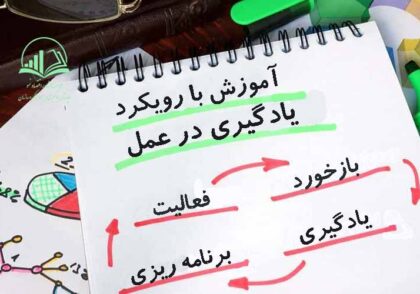 آموزش با رویکرد
یادگیری در عمل
بازخورد
فعالیت
یادگیری
برنامه ریزی